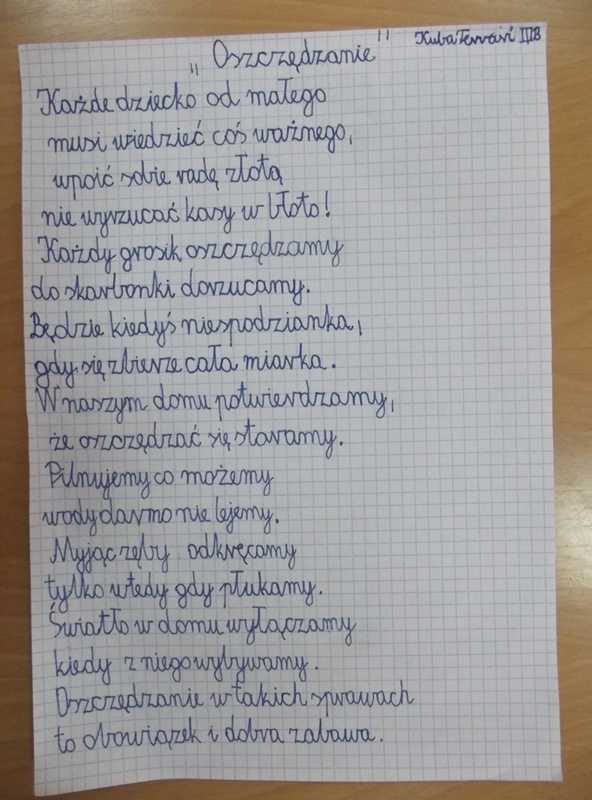 „Oszczędzanie" Kuba IIIB
Każde dziecko od małego
musi wiedzieć coś ważnego,
wpoić sobie radę złotą
nie wyrzucać kasy w błoto!
Każdy grosik oszczędzamy
do skarbonki dorzucamy.
Będzie kiedyś niespodzianka,
gdy się zbierze cała miarka.
W naszym domu potwierdzamy,
że oszczędzać się staramy.
Pilnujemy co możemy
wody darmo nie lejemy.
Myjąc zęby odkręcamy
tylko wtedy gdy płukamy.
Światło w domu wyłączamy
kiedy z niego wybywamy.
Oszczędzanie w takich sprawach
to obowiązek i dobra zabawa.